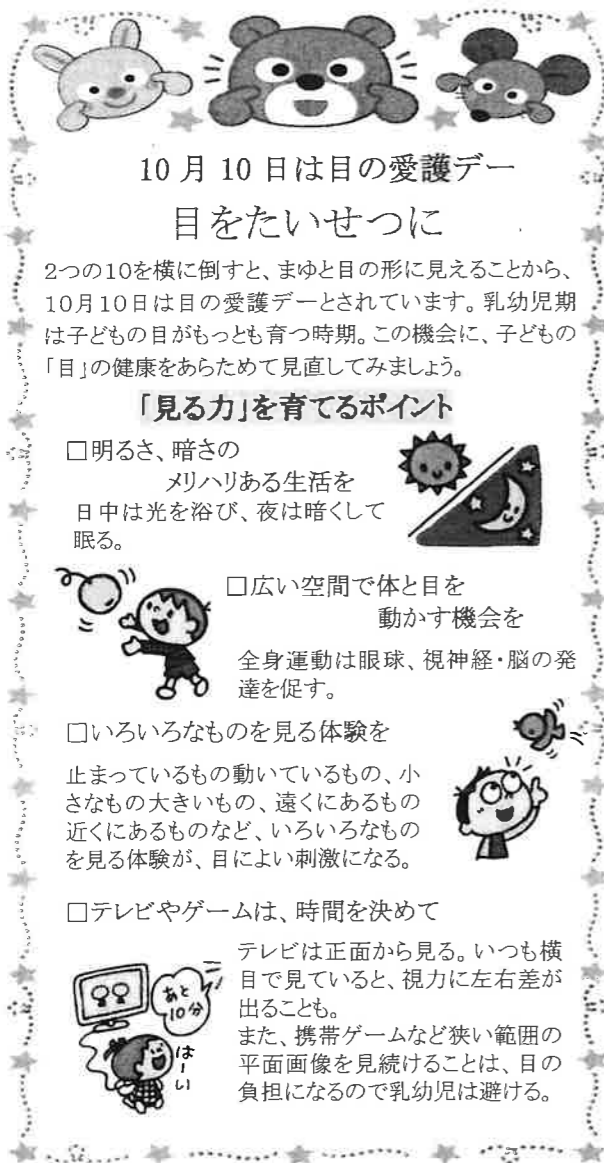 10月10日は目の愛護デー
目をたいせつに
2つの10を横に倒すと、まゆと目の形に見えることから、
10月10日は目の愛護デーとされています。乳幼児期
は子どもの目がもっとも育つ時期。この機会に、子どもの
「目」の健康をあらためて見直してみましょう。
「見る力」を育てるポイント
□明るさ、暗さの
メリハリある生活を
日中は光を浴び、夜は暗くして
眠る。
□広い空間で体と目を
動かす機会を
全身運動は眼球、視神経・脳の発
達を促す。
□いろいろなものを見る体験を
止まっているもの動いているもの、小
さなもの大きいもの、遠くにあるもの
近くにあるものなど、いろいろなもの
を見る体験が、目によい刺激になる。
□テレビやゲームは、時間を決めて
テレビは正面から見る。いつも横
目で見ていると、視力に左右差が
出ることも。
また、携帯ゲームなど狭い範囲の
平面画像を見続けることは、目の
負担になるので乳幼児は避ける。
あと
10分
はーい